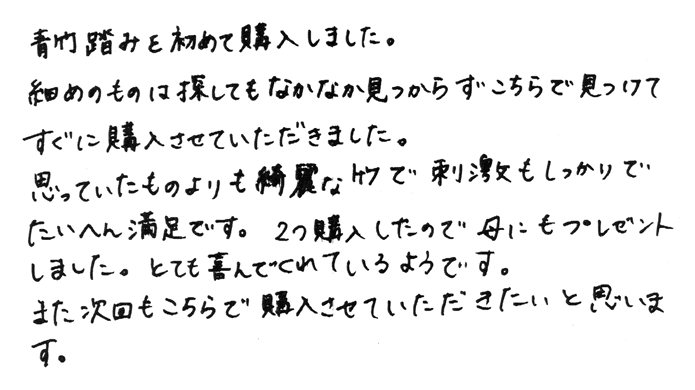 青竹踏みを初めて購入しました。
細めのものは探してもなかなか見つからずこちらで見つけて
すぐに購入させていただきました。
思っていたものよりも綺麗な竹で刺激もしっかりで
たいへん満足です。2つ購入したので母にもプレゼント
しました。とても喜んでくれているようです。
また次回もこちらで購入させていただきたいと思いま
す。